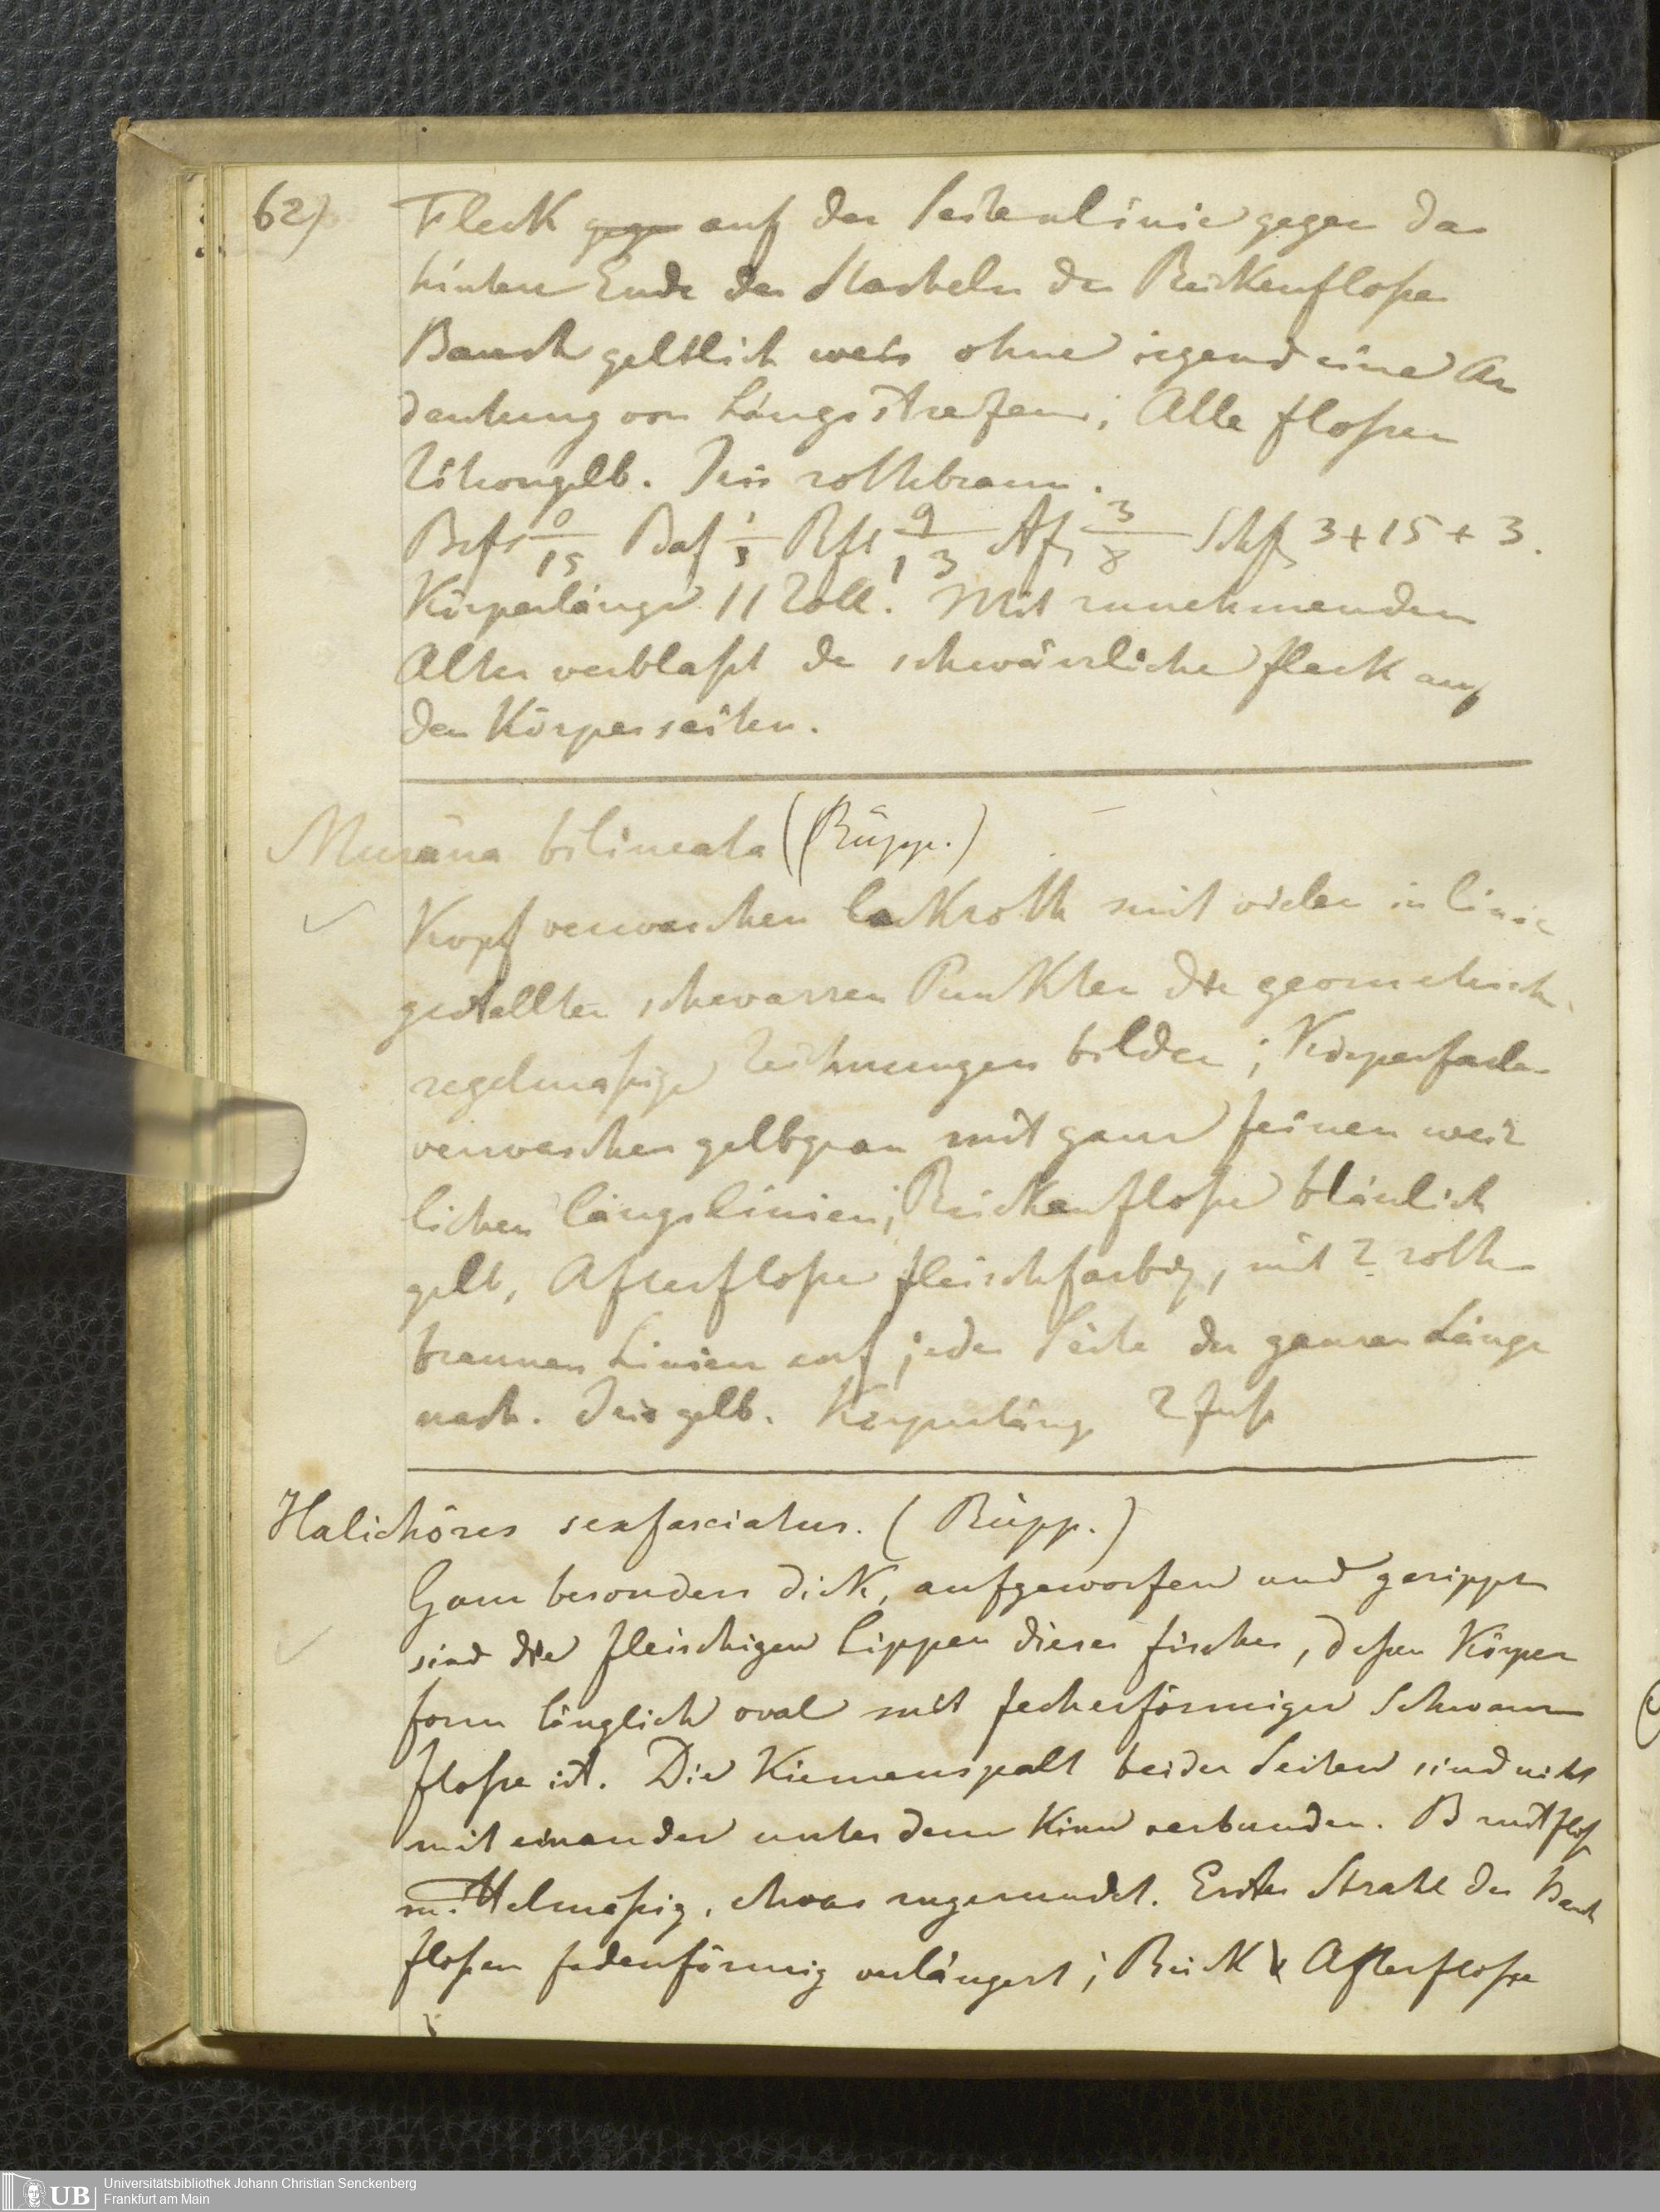 62)
Fleck gegen auf der Seitenlinie gegen das
hintere Ende der Stacheln der Rückenfloße
Bauch gelblich weis ohne irgend eine An
deutung von Längsstreifen; Alle floßen
Zitrongelb. Iris rothbraun.
Brfs 0/15 Baf 1/5 Rfls 9/13 Afs 3/8 Schfs 3+15+3.
Körperlänge 11 Zoll. Mit zunehmenden
Alter verblaßt der schwärzliche fleck auf
den Körperseiten.
Muräna bilineata (Rüpp.)
Kopf verwaschen lackroth mit vielen in linie
gestellten schwarzen Punkten die geometrisch
regelmäßige Zeichnungen bilden; Körperfarbe
verwaschen gelbgrau mit ganz feinen weis
lichen längslinien; Rückenfloße bläulich
gelb, Afterfloße fleischfarbig, mit 2 roth
braunen Linien auf jeder Seite der ganzen Länge
nach. Iris gelb. Körperläng 2 fuß
Halichöres sexfasciatus. (Rüpp.)
Ganz besonders dick, aufgeworfen und gerippt
sind die fleischigen Lippen dieses fisches, deßen Körper
form länglich oval mit fecherförmiger Schwanz
floße ist. Die Kiemenspalt beider Seiten sind nicht
mit einander unter dem Kinn verbunden. Brustfloß
mittelmäßig, etwas zugerundet. Erster Strahl der Bauch
floßen fadenförmig verlängert; Rück & Afterfloße
Universitätsbibliothek Johann Christian Senckenberg
Frankfurt am Main
UB